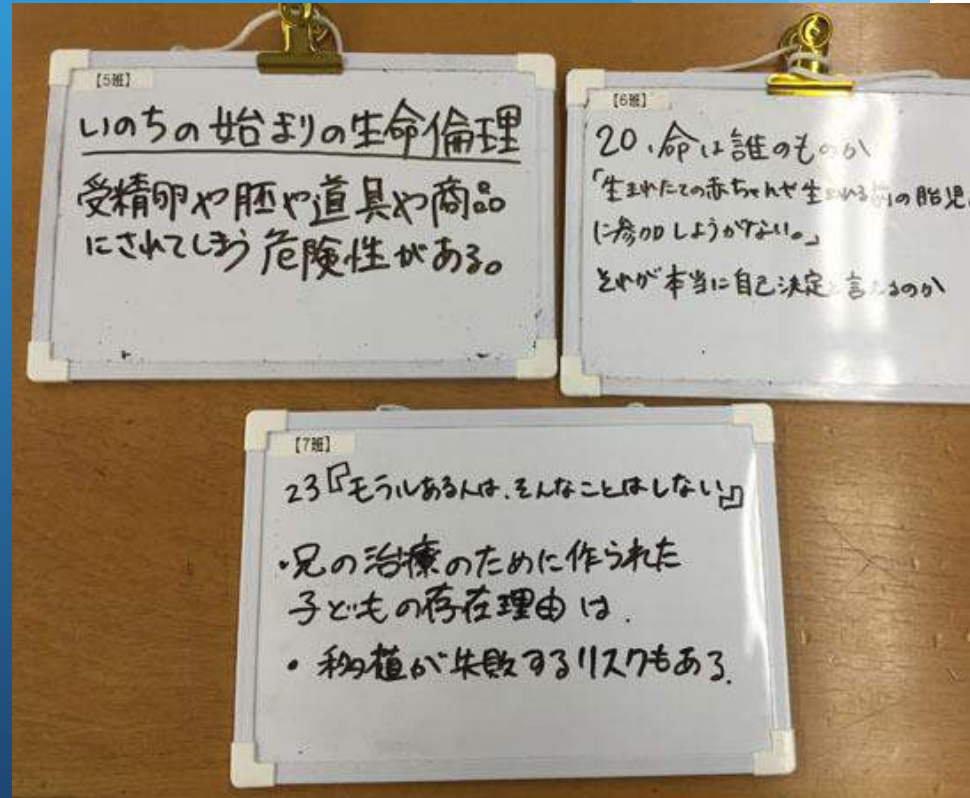 【5班】
いのちの始まりの生命倫理
受精卵や胚や道具や商品
にされてしまう危険性がある。
【6班】
20、命は誰のものか
「生まれたての赤ちゃんや生まれる前の胎児
に参加しようがない。」
それが本当に自己決定と言えるのか
【7班】
23『モラルある人は、そんなことはしない』
・兄の治療のために作られた
子どもの存在理由は.
・移植が失敗するリスクもある.